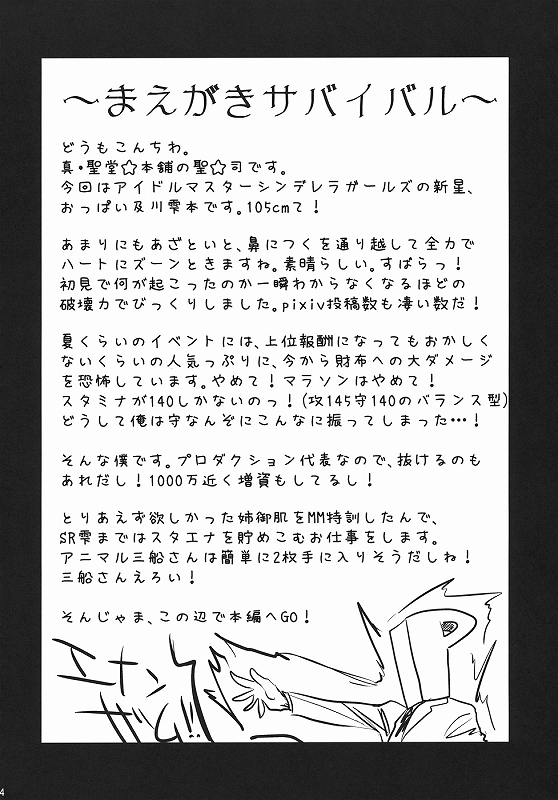 ～まえがきサバイバル～
どうもこんちわ。
真・聖堂☆本舗の聖☆司です。
今回はアイドルマスターシンデレラガールズの新星、
おっぱい及川雫本です。105cmて！
あまりにもあざといと、鼻につくを通り越して全力で
ハートにズーンときますね。素晴らしい。すばらっ！
初見で何が起こったのか一瞬わからなくなるほどの
破壊力でびっくりしました。pixiv投稿数も凄い数だ！
夏くらいのイベントには、上位報酬になってもおかしく
ないくらいの人気っぷりに、今から財布への大ダメージ
を恐怖しています。やめて！マラソンはやめて！
スタミナが140しかないのっ！(攻145守140のバランス型)
どうして俺は守なんぞにこんなに振ってしまった…！
そんな僕です。プロダクション代表なので、抜けるのも
あれだし！1000万近く増資もしてるし！
とりあえず欲しかった姉御肌をMM特訓したんで、
SR雫まではスタエナを貯めこむお仕事をします。
アニマル三船さんは簡単に2枚手に入りそうだしね！
三船さんえろい！
そんじゃま、この辺で本編へGO！
4